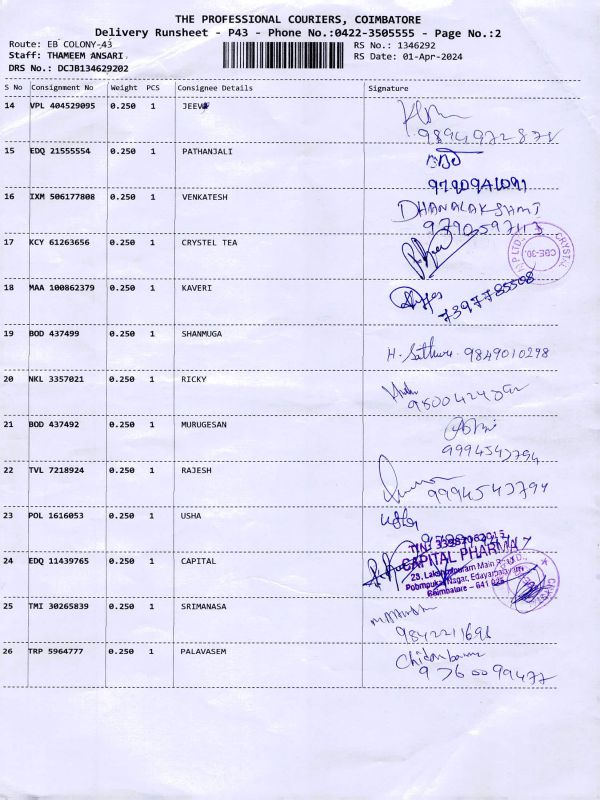 THE PROFESSIONAL COURIERS, COIMBATORE
Delivery Runsheet - P43 - Phone No.:0422-3505555 - Page No.:2
Route: EB COLONY-43 RS No.: 1346292
Staff: THAMEEM ANSARI RS Date: 01-Apr-2024
DRS No.: DCJB134629202
S No Consignment No Weight PCS Consignee Details Signature
14 VPL 404529095 0.250 1 JEEVA
15 EDQ 21555554 0.250 1 PATHANJALI
9790941091
16 IXM 506177808 0.250 1 VENKATESH DHANALAKSHMI
9790597113
17 KCY 61263656 0.250 1 CRYSTEL TEA
CRYSTAL
CBE-30.
18 MAA 100862379 0.250 1 KAVERI
7397785508
19 BOD 437499 0.250 1 SHANMUGA
H. Sathura. 9849010298
20 NKL 3357021 0.250 1 RICKY
21 BOD 437492 0.250 1 MURUGESAN
9994543794
22 TVL 7218924 0.250 1 RAJESH
9994543794
23 POL 1616053 0.250 1 USHA Usha
24 EDQ 11439765 0.250 1 CAPITAL
CAPITAL PHARMA
Coimbatore - 641 026
25 TMI 30265839 0.250 1 SRIMANASA
9842211696
26 TRP 5964777 0.250 1 PALAVASEM
9760099477